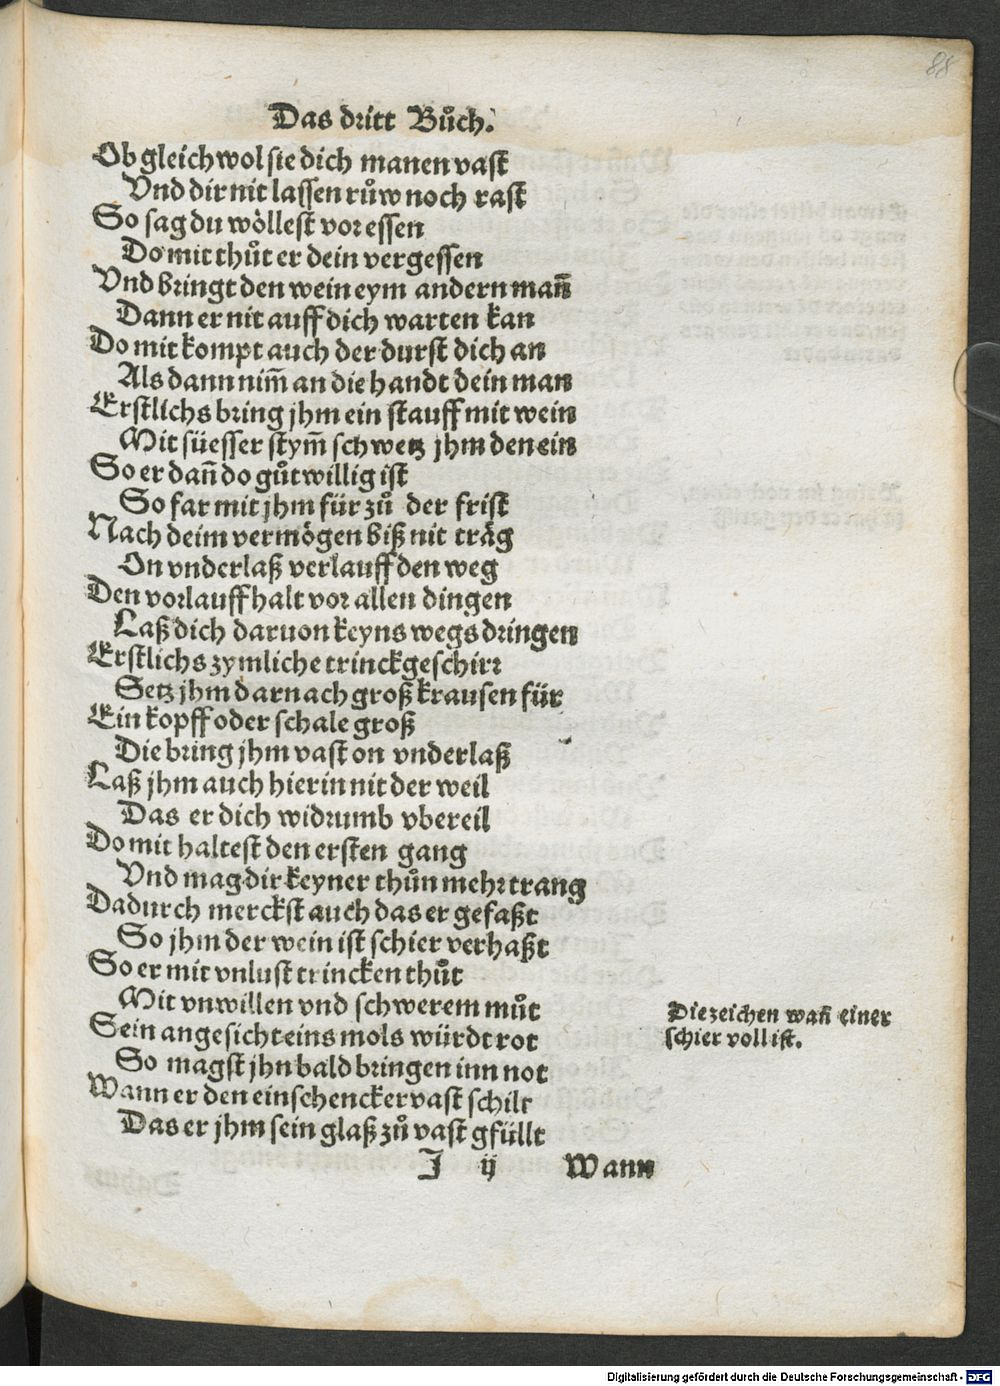 88
Das dritt Bůch.
Ob gleichwol sie dich manen vast
Vnd dir nit lassen růw noch rast
So sag du wöllest vor essen
Do mit thůt er dein vergessen
Vnd bringt den wein eym andern mañ
Dann er nit auff dich warten kan
Do mit kompt auch der durst dich an
Als dann nim̃ an die handt dein man
Erstlichs bring jhm ein stauff mit wein
Mit süesser stym̃ schwetz jhm den ein
So er dañ do gůtwillig ist
So far mit jhm für zů der frist
Nach deim vermögen biß nit träg
On vnderlaß verlauff den weg
Den vorlauff halt vor allen dingen
Laß dich daruon keyns wegs dringen
Erstlichs zymliche trinckgeschirr
Setz jhm darnach groß krausen für
Ein kopff oder schale groß
Die bring jhm vast on vnderlaß
Laß jhm auch hierin nit der weil
Das er dich widrumb vbereil
Do mit haltest den ersten gang
Vnd mag dir keyner thůn mehr trang
Dadurch merckst auch das er gefaßt
So jhm der wein ist schier verhaßt
So er mit vnlust trincken thůt
Mit vnwillen vnd schwerem můt
Sein angesicht eins mols würdt rot
So magst jhn bald bringen inn not
Wann er den einschencker vast schilt
Das er jhm sein glaß zů vast gfüllt
Die zeichen wañ einer
schier voll ist.
J ij Wann
Digitalisierung gefördert durch die Deutsche Forschungsgemeinschaft - DFG